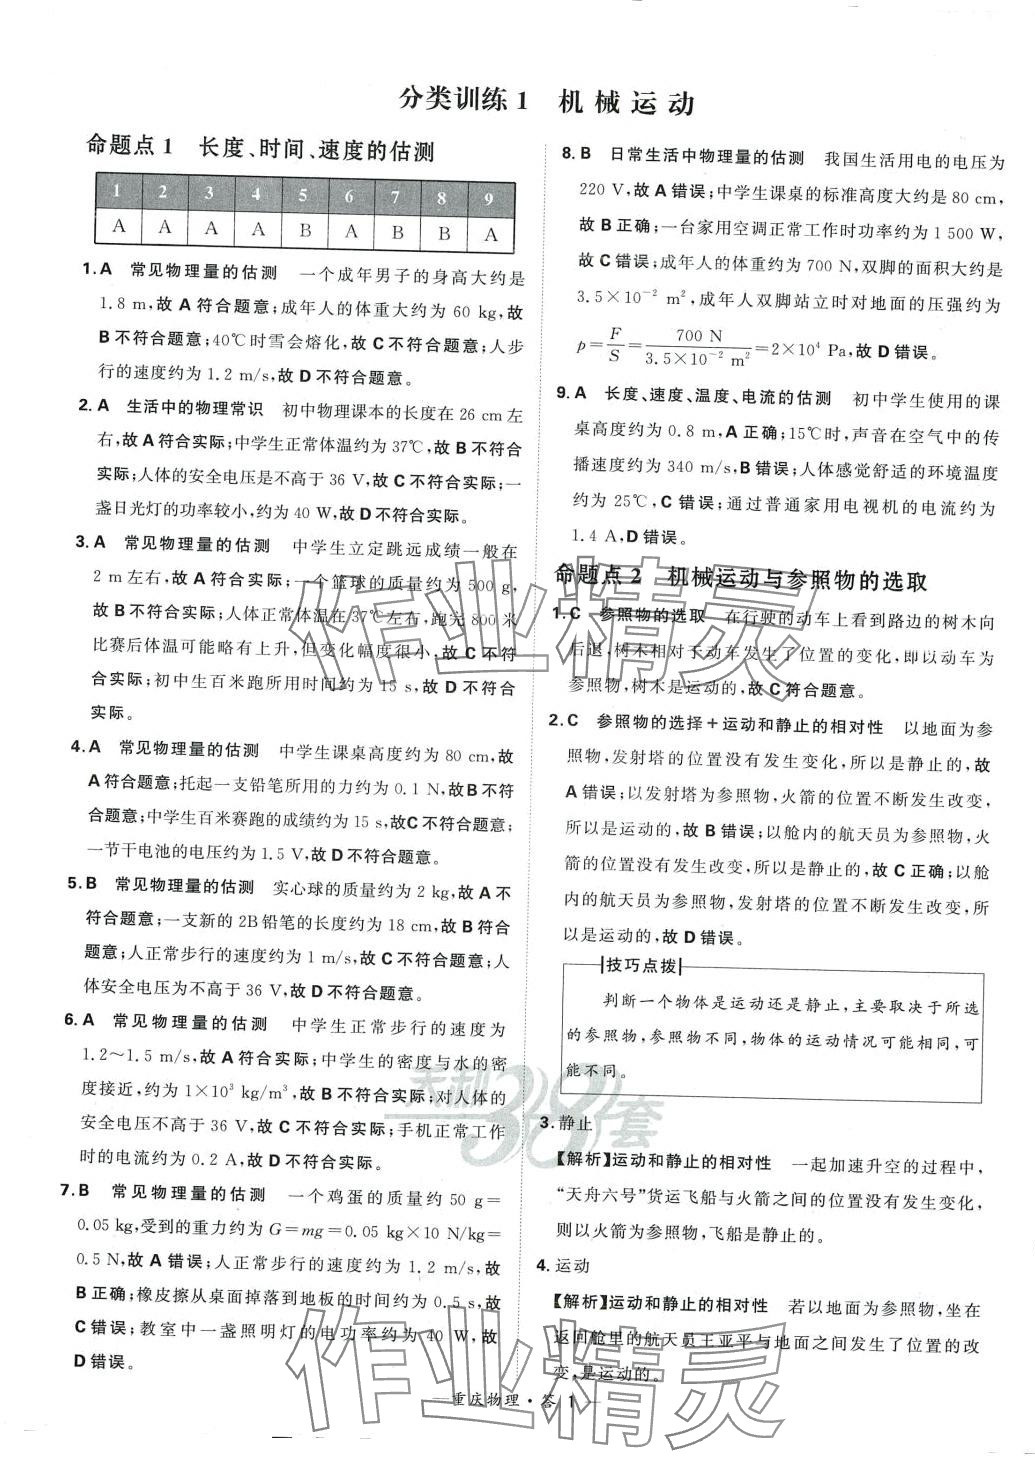 分类训练1 机械运动
命题点1 长度、时间、速度的估测
1 2 3 4 5 6 7 8 9
A A A A B A B B A
1.A 常见物理量的估测 一个成年男子的身高大约是
1.8 m,故A符合题意;成年人的体重大约为 60 kg,故
B不符合题意;40℃时雪会熔化,故C不符合题意;人步
行的速度约为1.2 m/s,故D不符合题意。
2.A 生活中的物理常识 初中物理课本的长度在26 cm左
右,故A符合实际;中学生正常体温约为37℃,故B不符合
实际;人体的安全电压是不高于36 V,故C不符合实际;一
盏日光灯的功率较小,约为40 W,故D不符合实际。
3.A 常见物理量的估测 中学生立定跳远成绩一般在
2 m左右,故A符合实际;一个篮球的质量约为500 g,
故B不符合实际;人体正常体温在37℃左右,跑完800米
比赛后体温可能略有上升,但变化幅度很小,故C不符
合实际;初中生百米跑所用时间约为15 s,故D不符合
实际。
4.A 常见物理量的估测 中学生课桌高度约为80 cm,故
A符合题意;托起一支铅笔所用的力约为0.1 N,故B不符
合题意;中学生百米赛跑的成绩约为15 s,故C不符合题意;
一节干电池的电压约为1.5 V,故D不符合题意。
5.B 常见物理量的估测 实心球的质量约为2 kg,故A不
符合题意;一支新的2B铅笔的长度约为18 cm,故B符合
题意;人正常步行的速度约为1 m/s,故C不符合题意;人
体安全电压为不高于36 V,故D不符合题意。
6.A 常见物理量的估测 中学生正常步行的速度为
1.2～1.5 m/s,故A符合实际;中学生的密度与水的密
度接近,约为1×10³ kg/m³,故B不符合实际;对人体的
安全电压不高于36 V,故C不符合实际;手机正常工作
时的电流约为0.2 A,故D不符合实际。
7.B 常见物理量的估测 一个鸡蛋的质量约50 g=
0.05 kg,受到的重力约为G=mg=0.05 kg×10 N/kg=
0.5 N,故A错误;人正常步行的速度约为1.2 m/s,故
B正确;橡皮擦从桌面掉落到地板的时间约为0.5 s,故
C错误;教室中一盏照明灯的电功率约为40 W,故
D错误。
8.B 日常生活中物理量的估测 我国生活用电的电压为
220 V,故A错误;中学生课桌的标准高度大约是80 cm,
故B正确;一台家用空调正常工作时功率约为1 500 W,
故C错误;成年人的体重约为700 N,双脚的面积大约是
3.5×10⁻² m²,成年人双脚站立时对地面的压强约为
p=F/S=700 N/3.5×10⁻² m²=2×10⁴ Pa,故D错误。
9.A 长度、速度、温度、电流的估测 初中学生使用的课
桌高度约为0.8 m,A正确;15℃时,声音在空气中的传
播速度约为340 m/s,B错误;人体感觉舒适的环境温度
约为25℃,C错误;通过普通家用电视机的电流约为
1.4 A,D错误。
命题点2 机械运动与参照物的选取
1.C 参照物的选取 在行驶的动车上看到路边的树木向
后退,树木相对于动车发生了位置的变化,即以动车为
参照物,树木是运动的,故C符合题意。
2.C 参照物的选择+运动和静止的相对性 以地面为参
照物,发射塔的位置没有发生变化,所以是静止的,故
A错误;以发射塔为参照物,火箭的位置不断发生改变,
所以是运动的,故B错误;以舱内的航天员为参照物,火
箭的位置没有发生改变,所以是静止的,故C正确;以舱
内的航天员为参照物,发射塔的位置不断发生改变,所
以是运动的,故D错误。
技巧点拨
判断一个物体是运动还是静止,主要取决于所选
的参照物,参照物不同,物体的运动情况可能相同,可
能不同。
3.静止
【解析】运动和静止的相对性 一起加速升空的过程中,
“天舟六号”货运飞船与火箭之间的位置没有发生变化,
则以火箭为参照物,飞船是静止的。
4.运动
【解析】运动和静止的相对性 若以地面为参照物,坐在
返回舱里的航天员王亚平与地面之间发生了位置的改
变,是运动的。
作业精灵
天利38套
作业精灵
—重庆物理·答1—